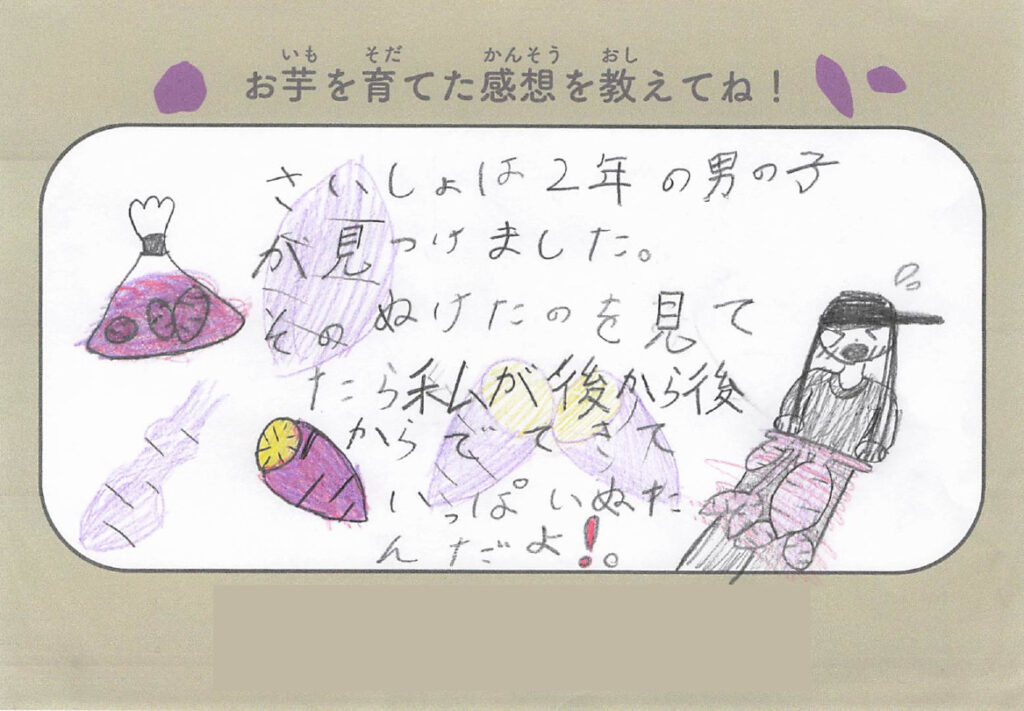 いも そだ かんそう おし
お芋を育てた感想を教えてね！
さいしょは2年の男の子
が見つけました。
そのぬけたのを見て
たら私が後から後
からでてきて
いっぱいぬた
んだよ！。